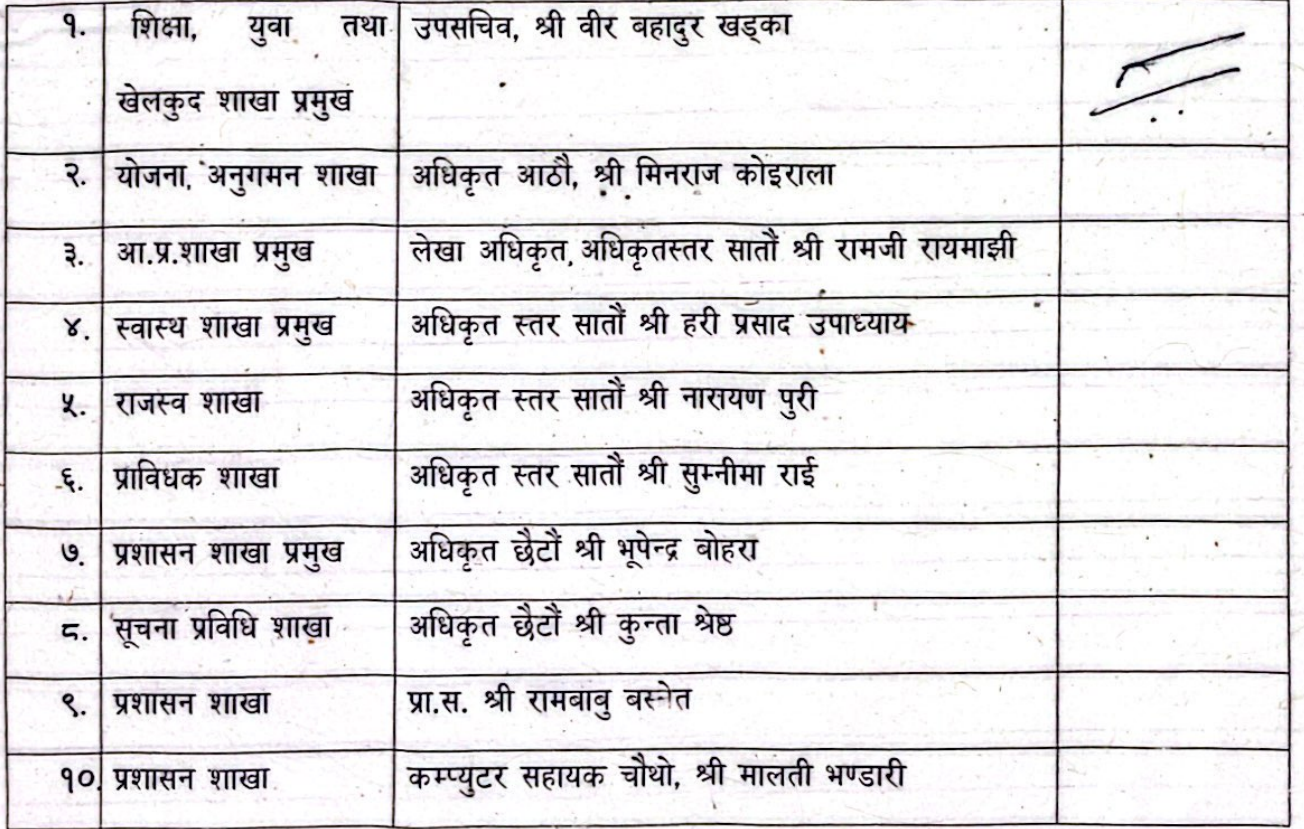 १. शिक्षा, युवा तथा उपसचिव, श्री वीर वहादुर खड्का
खेलकुद शाखा प्रमुख
२. योजना, अनुगमन शाखा अधिकृत आठौ, श्री मिनराज कोइराला
३. आ.प्र.शाखा प्रमुख लेखा अधिकृत, अधिकृतस्तर सातौं श्री रामजी रायमाझी
४. स्वास्थ शाखा प्रमुख अधिकृत स्तर सातौं श्री हरी प्रसाद उपाध्याय
५. राजस्व शाखा अधिकृत स्तर सातौं श्री नारायण पुरी
६. प्राविधक शाखा अधिकृत स्तर सातौं श्री सुम्नीमा राई
७. प्रशासन शाखा प्रमुख अधिकृत छैटौं श्री भूपेन्द्र वोहरा
८. सूचना प्रविधि शाखा अधिकृत छैटौं श्री कुन्ता श्रेष्ठ
९. प्रशासन शाखा प्रा.स. श्री रामवावु वस्नेत
१०. प्रशासन शाखा कम्प्युटर सहायक चौथो, श्री मालती भण्डारी